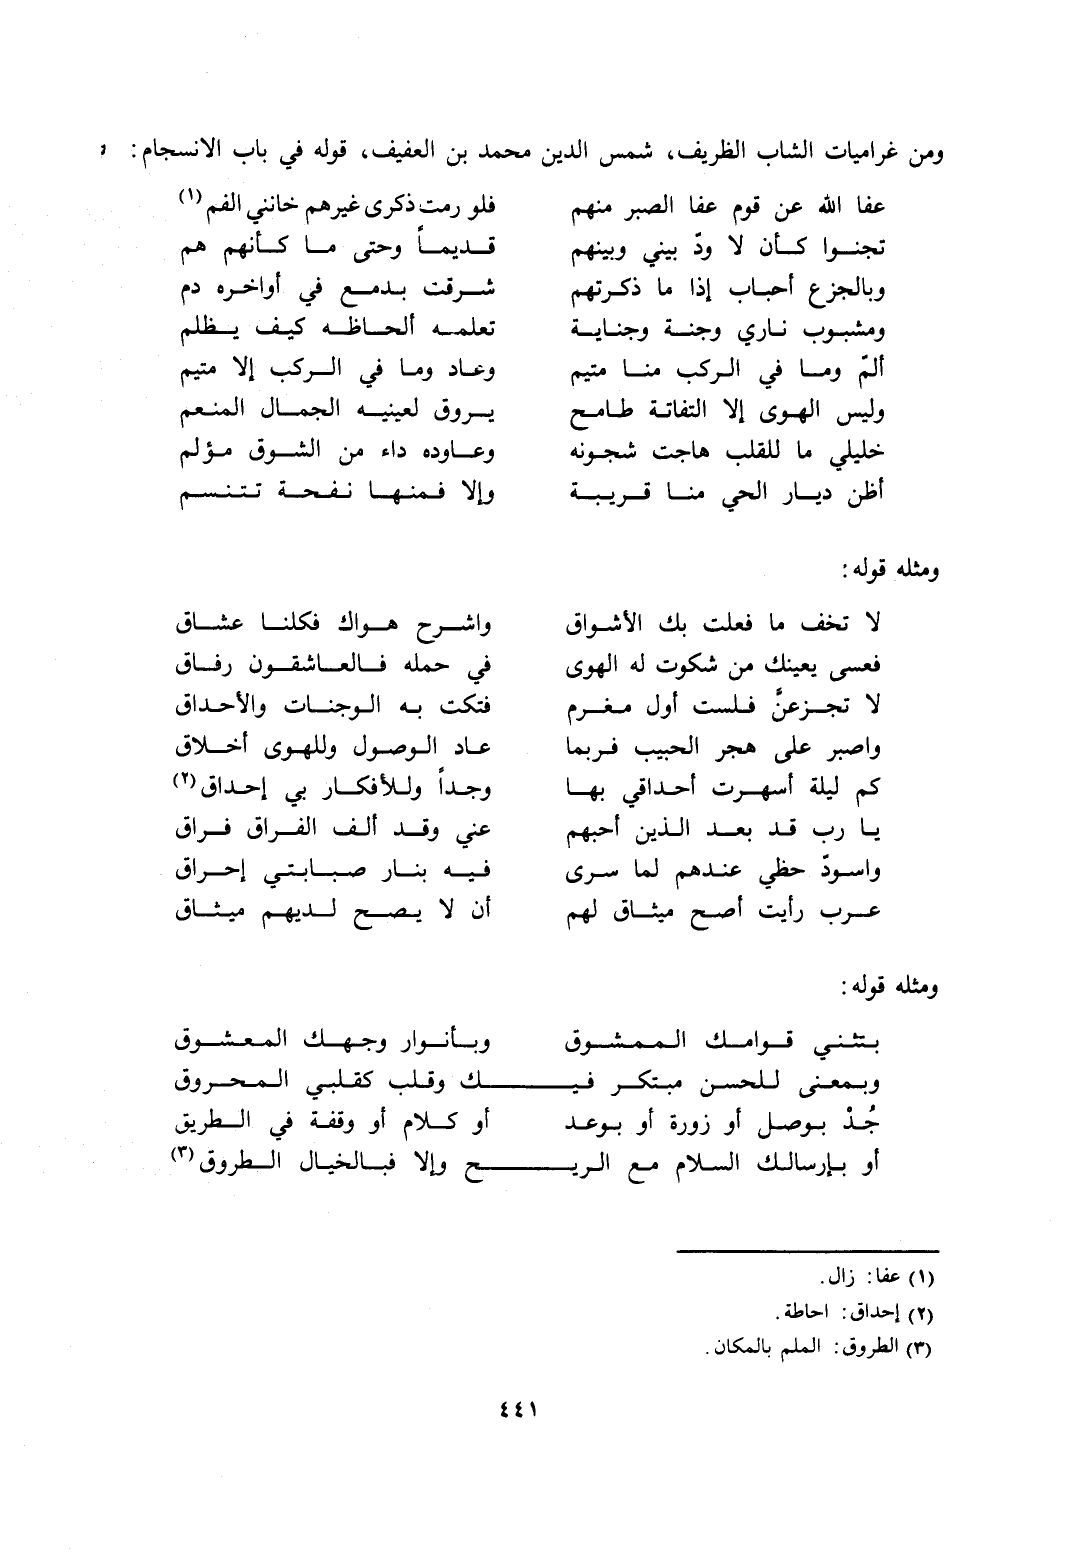 ومن غراميات الشاب الظريف، شمس الدين محمد بن العفيف، قوله في باب الانسجام:
عفا الله عن قوم عفا الصبر منهم فلو رمت ذكرى غيرهم خانني الفم(١)
تجنوا كأن لا ودّ بيني وبينهم قديماً وحتى ما كأنهم هم
وبالجزع أحباب إذا ما ذكرتهم شرقت بدمع في أواخره دم
ومشبوب ناري وجنة وجناية تعلمه ألحاظه كيف يظلم
ألمّ وما في الركب منا متيم وعاد وما في الركب إلا متيم
وليس الهوى إلا التفاتة طامح يروق لعينيه الجمال المنعم
خليلي ما للقلب هاجت شجونه وعاوده داء من الشوق مؤلم
أظن ديار الحي منا قريبة وإلا فمنها نفحة تتنسم
ومثله قوله:
لا تخف ما فعلت بك الأشواق واشرح هواك فكلنا عشاق
فعسى يعينك من شكوت له الهوى في حمله فالعاشقون رفاق
لا تجزعنَّ فلست أول مغرم فتكت به الوجنات والأحداق
واصبر على هجر الحبيب فربما عاد الوصول وللهوى أخلاق
كم ليلة أسهرت أحداقي بها وجداً وللأفكار بي إحداق(٢)
يا رب قد بعد الذين أحبهم عني وقد ألف الفراق فراق
واسودّ حظي عندهم لما سرى فيه بنار صبابتي إحراق
عرب رأيت أصح ميثاق لهم أن لا يصح لديهم ميثاق
ومثله قوله:
بتثني قوامك الممشوق وبأنوار وجهك المعشوق
وبمعنى للحسن مبتكر فيك وقلب كقلبي المحروق
جُدْ بوصل أو زورة أو بوعد أو كلام أو وقفة في الطريق
أو بإرسالك السلام مع الريح وإلا فبالخيال الطروق(٣)
(١) عفا: زال.
(٢) إحداق: احاطة.
(٣) الطروق: الملم بالمكان.
٤٤١